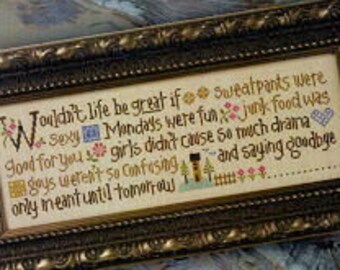 Wouldn't life be great if sweatpants were
sexy Mondays were fun junk food was
good for you girls didn't cause so much drama
guys weren't so confusing and saying goodbye
only meant until tomorrow